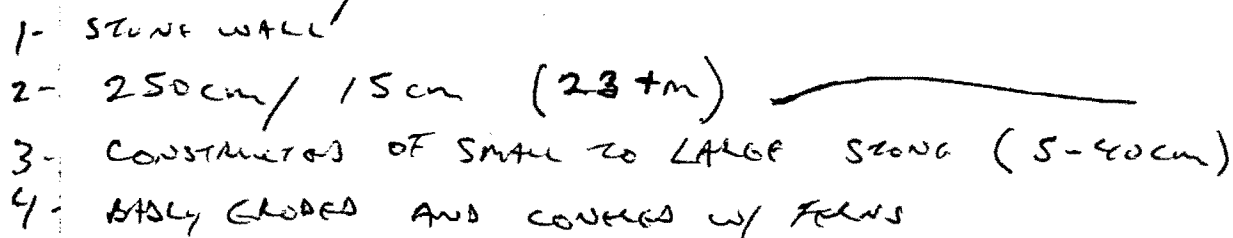 1- STONE WALL
2- 250cm/ 15cm (23+m)
3- CONSTRUCTED OF SMALL TO LARGE STONE (5-40cm)
4- BADLY ERODED AND COVERED W/ FERNS